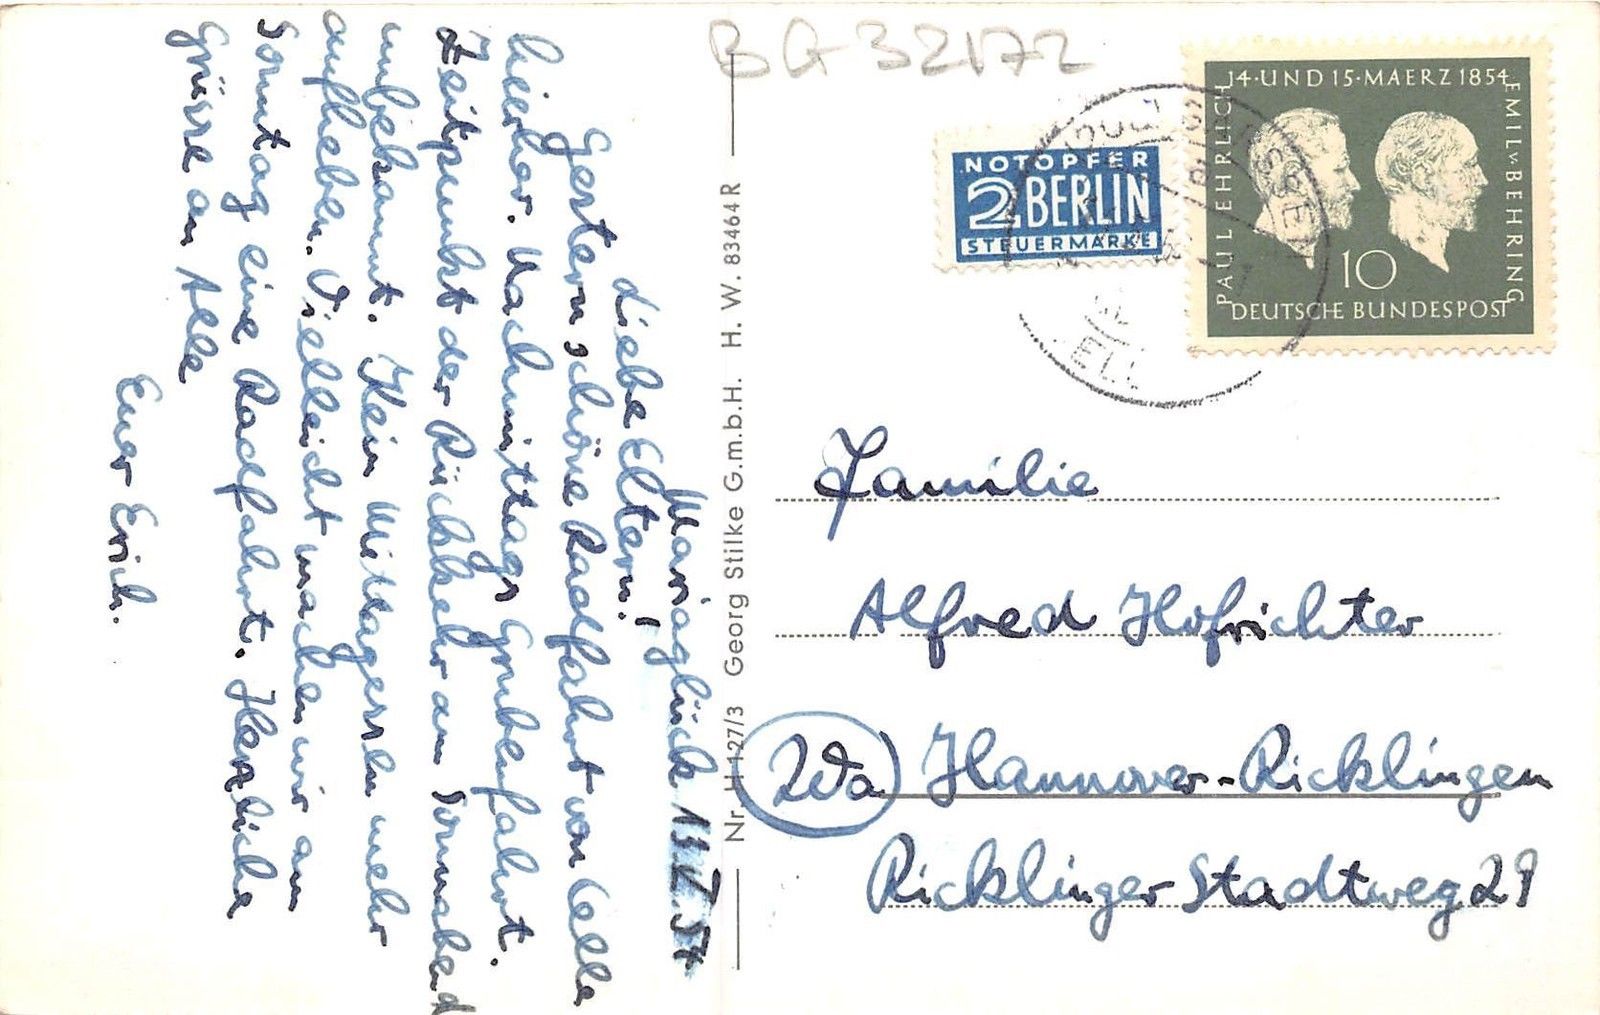 BG32172
Mariaglück 13.V.54
Liebe Eltern!
Gestern schöne Radfahrt von Celle
hierher. Nachmittags Grubenfahrt.
Zeitpunkt der Rückkehr am Sonnabend
unbekannt. Kein Mittagessen mehr
aufheben. Vielleicht machen wir am
Sonntag eine Radfahrt. Herzliche
Grüsse an Alle
Euer Erich.
Nr. H 127/3 Georg Stilke G.m.b.H. H. W. 83464 R
NOTOPFER
2 BERLIN
STEUERMARKE
14·UND 15·MAERZ 1854
PAUL EHRLICH
EMIL v. BEHRING
10
DEUTSCHE BUNDESPOST
Familie
Alfred Hofrichter
20a Hannover-Ricklingen
Ricklinger Stadtweg 29